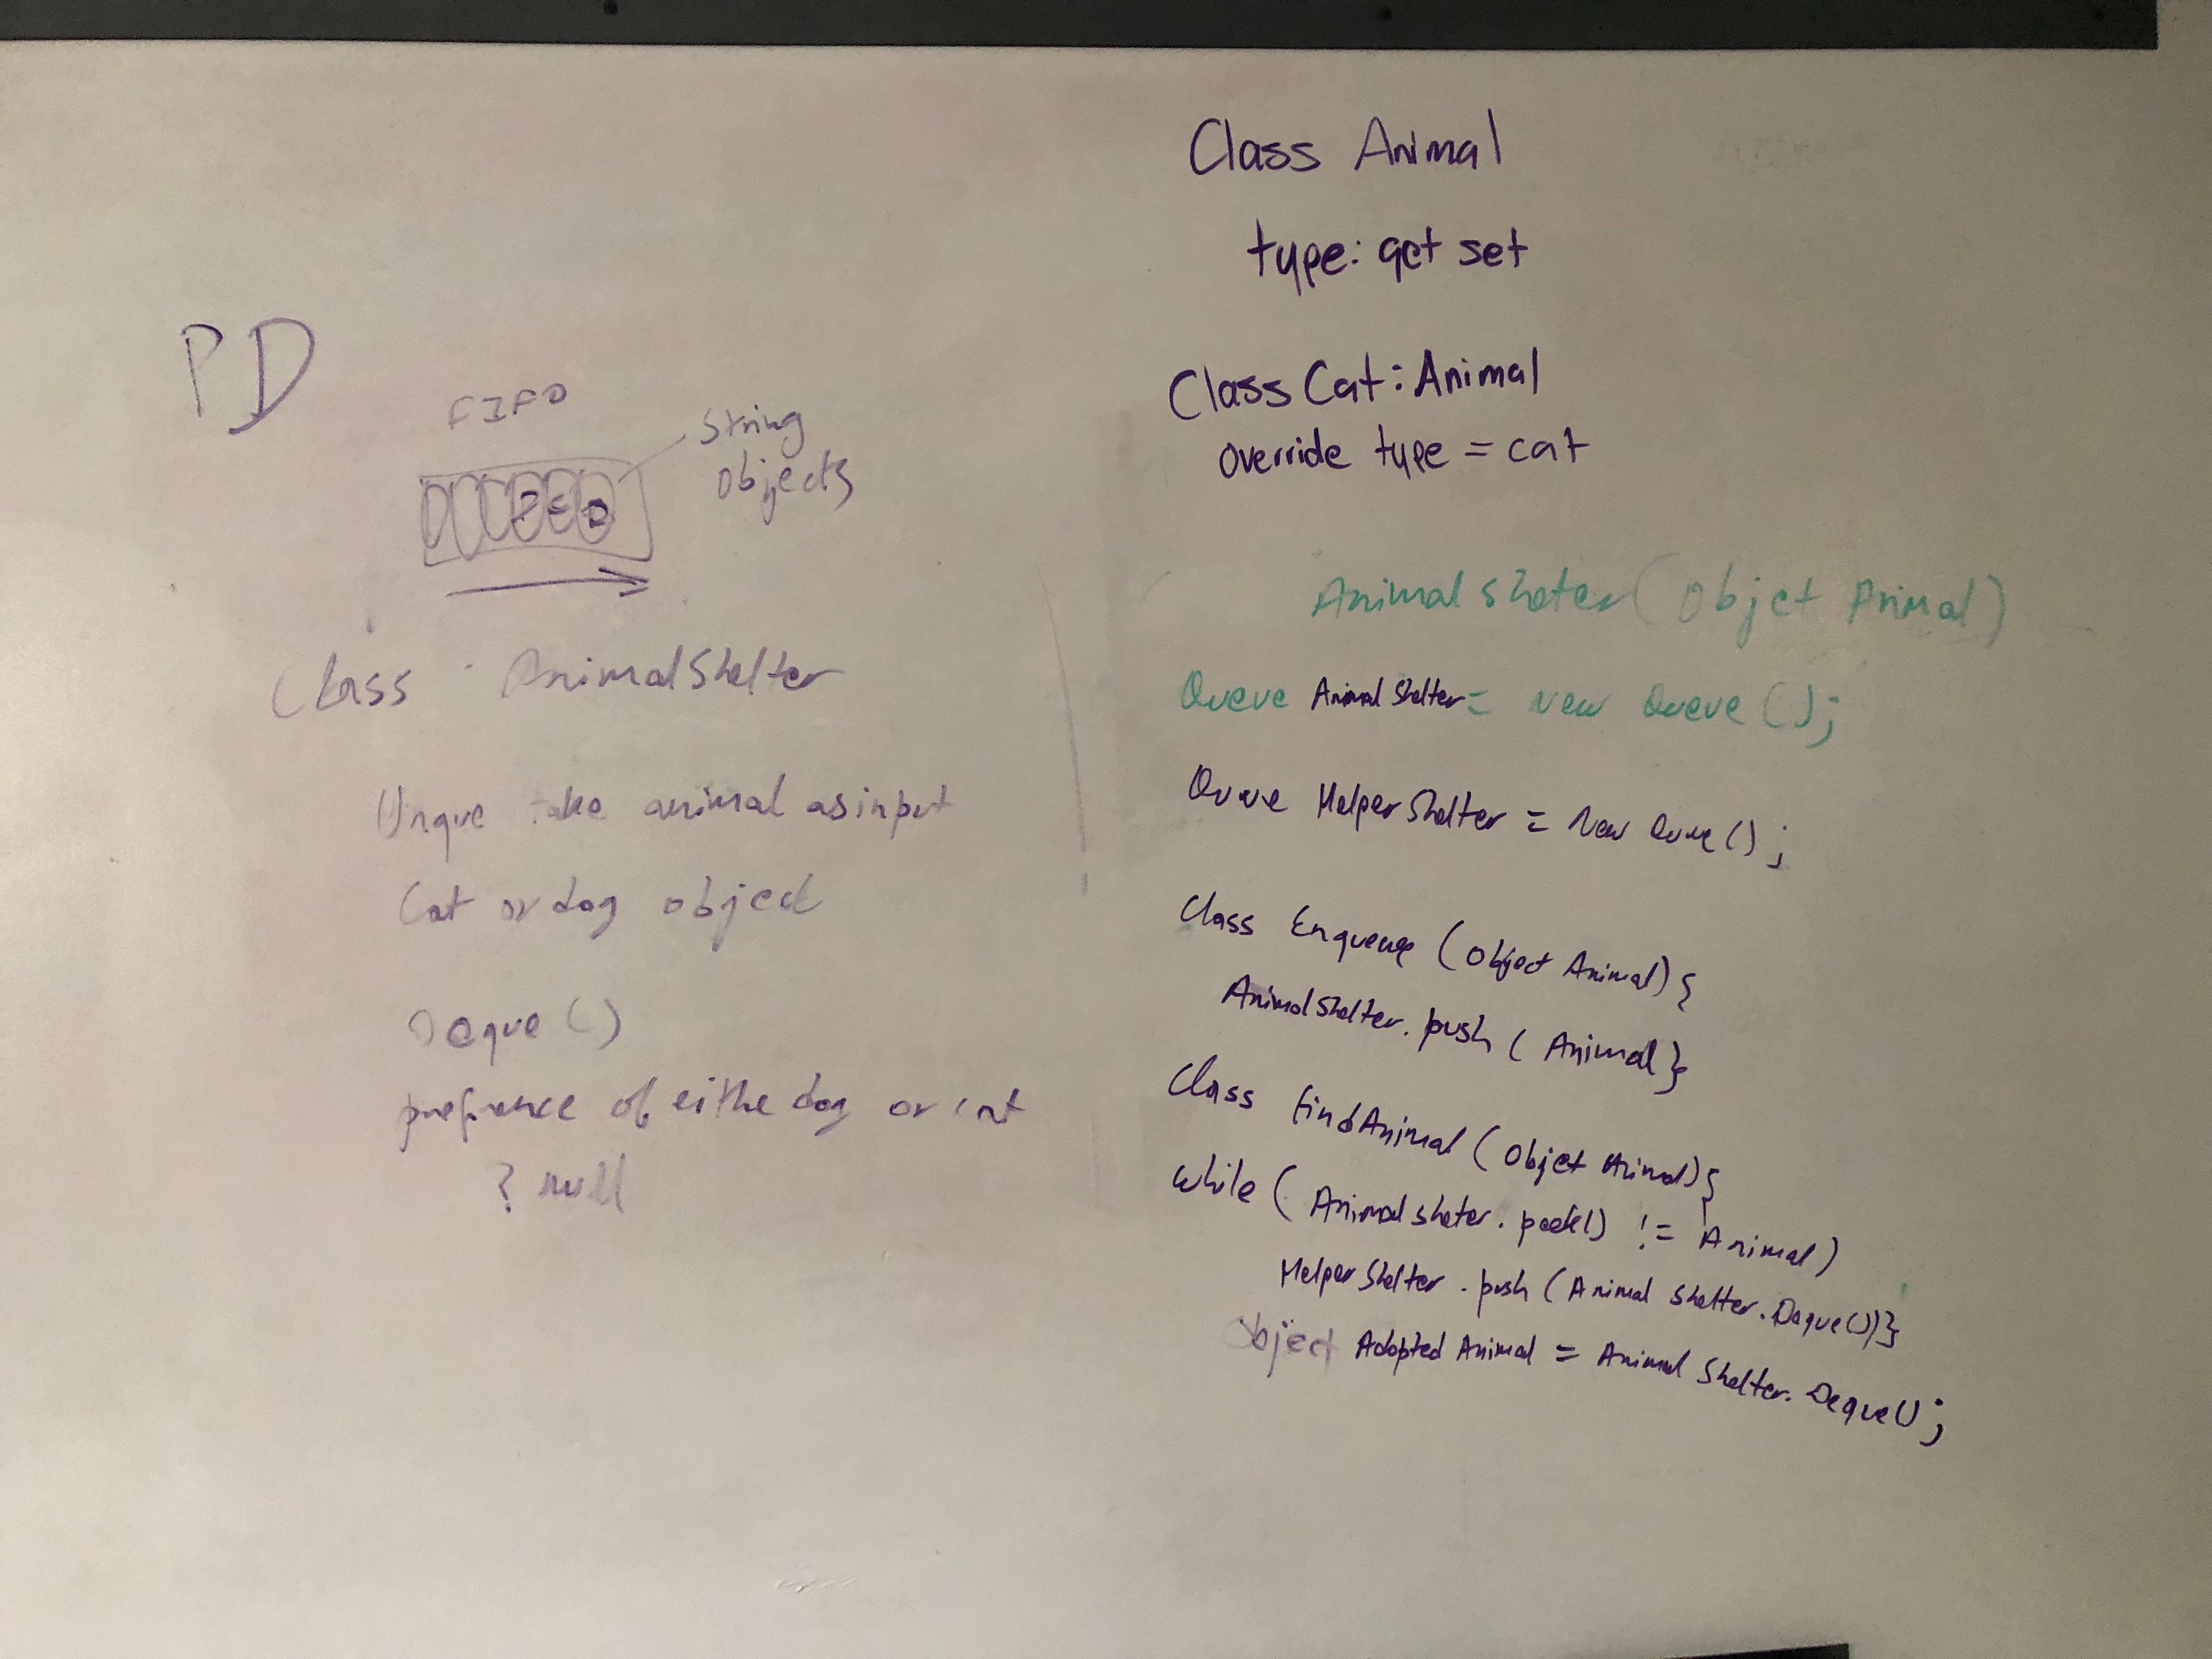 PD
FIFO
String
objects
Class AnimalShelter
Unque take animal as input
Cat or dog object
Deque ()
prefrence of eithe dog or cat
? null
Class Animal
type: get set
Class Cat: Animal
override type = cat
Animal shater (Objet Animal)
Queve Animal Shelter = new Queve ();
Queue Helper Shelter = New Queue ();
Class Enqueue (Object Animal) {
AnimalShelter. push ( Animal }
Class findAnimal (Objet Animal) {
while ( Animal shater. peek() != Animal)
Helper Shelter . push (Animal Shelter. Deque())}
Object Adopted Animal = Animal Shelter. Deque();